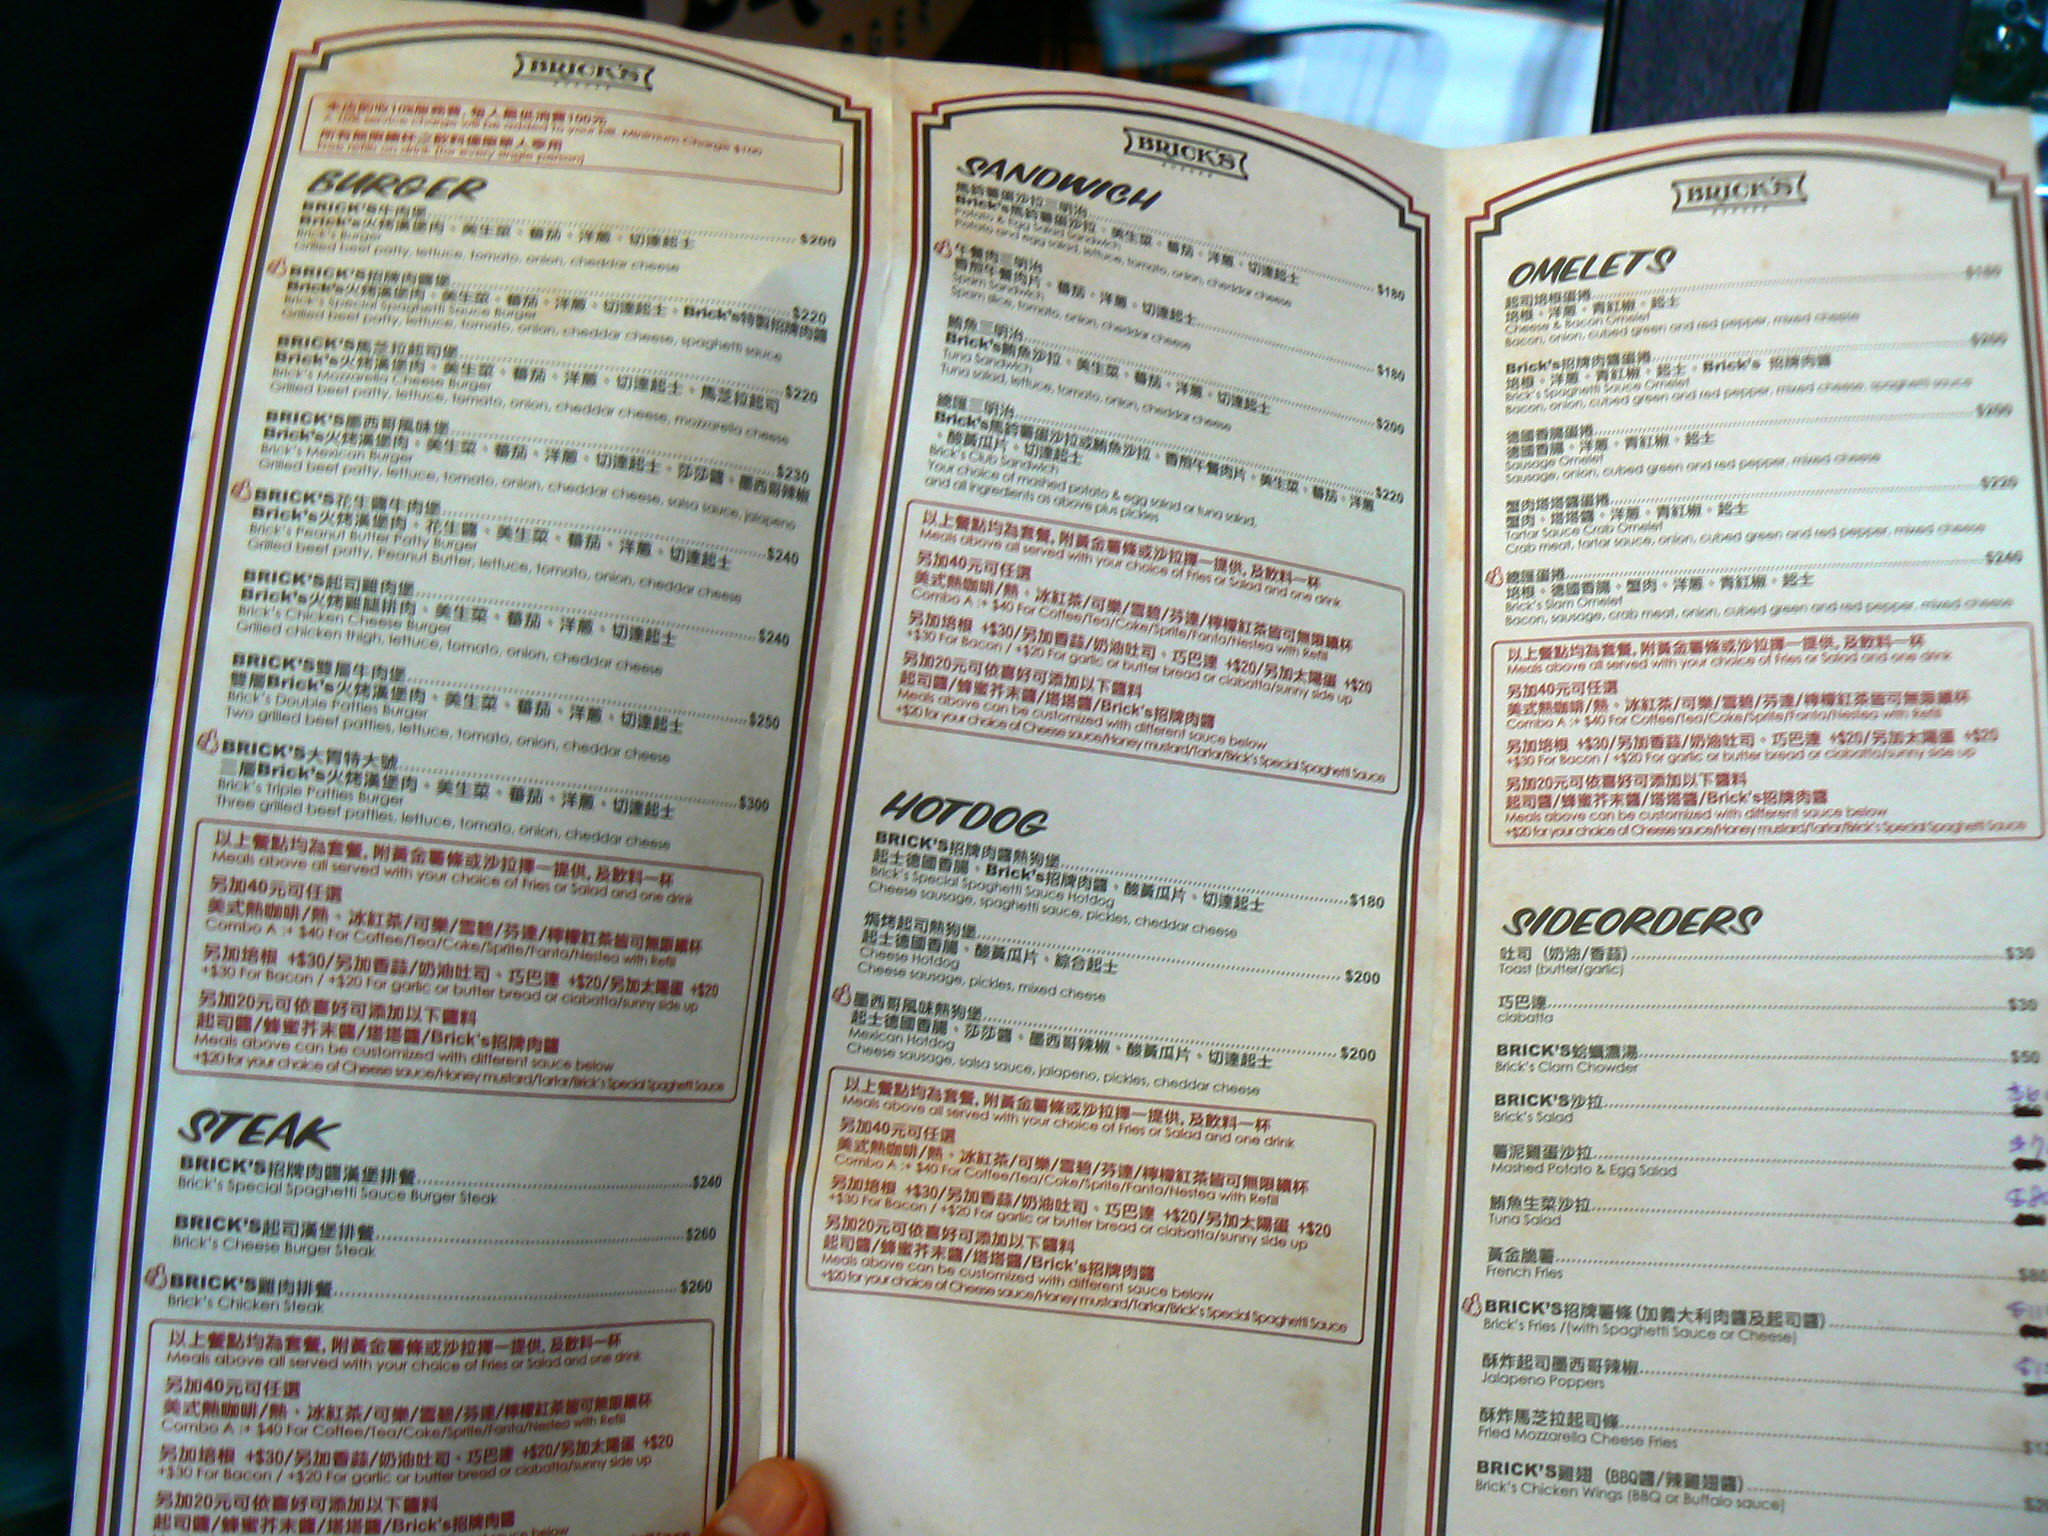 BRICK'S
本店酌收10%服務費, 每人最低消費100元
A 10% service charge will be added to your bill. Minimum Charge $100
所有無限續杯之飲料僅限單人享用
Free refills on drink (for every single person)
BURGER
BRICK'S牛肉堡 $200
Brick's火烤漢堡肉、美生菜、蕃茄、洋蔥、切達起士
Brick's Burger
Grilled beef patty, lettuce, tomato, onion, cheddar cheese
BRICK'S招牌肉醬堡 $220
Brick's火烤漢堡肉、美生菜、蕃茄、洋蔥、切達起士、Brick's特製招牌肉醬
Brick's Special Spaghetti Sauce Burger
Grilled beef patty, lettuce, tomato, onion, cheddar cheese, spaghetti sauce
BRICK'S馬芝拉起司堡 $220
Brick's火烤漢堡肉、美生菜、蕃茄、洋蔥、切達起士、馬芝拉起司
Brick's Mozzarella Cheese Burger
Grilled beef patty, lettuce, tomato, onion, cheddar cheese, mozzarella cheese
BRICK'S墨西哥風味堡 $230
Brick's火烤漢堡肉、美生菜、蕃茄、洋蔥、切達起士、莎莎醬、墨西哥辣椒
Brick's Mexican Burger
Grilled beef patty, lettuce, tomato, onion, cheddar cheese, salsa sauce, jalapeno
BRICK'S花生醬牛肉堡 $240
Brick's火烤漢堡肉、花生醬、美生菜、蕃茄、洋蔥、切達起士
Brick's Peanut Butter Patty Burger
Grilled beef patty, Peanut Butter, lettuce, tomato, onion, cheddar cheese
BRICK'S起司雞肉堡 $240
Brick's火烤雞腿排肉、美生菜、蕃茄、洋蔥、切達起士
Brick's Chicken Cheese Burger
Grilled chicken thigh, lettuce, tomato, onion, cheddar cheese
BRICK'S雙層牛肉堡 $250
雙層Brick's火烤漢堡肉、美生菜、蕃茄、洋蔥、切達起士
Brick's Double Patties Burger
Two grilled beef patties, lettuce, tomato, onion, cheddar cheese
BRICK'S大胃特大號 $300
三層Brick's火烤漢堡肉、美生菜、蕃茄、洋蔥、切達起士
Brick's Triple Patties Burger
Three grilled beef patties, lettuce, tomato, onion, cheddar cheese
以上餐點均為套餐, 附黃金薯條或沙拉擇一提供, 及飲料一杯
Meals above all served with your choice of Fries or Salad and one drink
另加40元可任選
美式熱咖啡/熱、冰紅茶/可樂/雪碧/芬達/檸檬紅茶皆可無限續杯
Combo A :+ $40 For Coffee/Tea/Coke/Sprite/Fanta/Nestea with Refill
另加培根 +$30/另加香蒜/奶油吐司、巧巴達 +$20/另加太陽蛋 +$20
+$30 For Bacon / +$20 For garlic or butter bread or ciabatta/sunny side up
另加20元可依喜好可添加以下醬料
起司醬/蜂蜜芥末醬/塔塔醬/Brick's招牌肉醬
Meals above can be customized with different sauce below
+$20 for your choice of Cheese sauce/Honey mustard/Tartar/Brick's Special Spaghetti Sauce
STEAK
BRICK'S招牌肉醬漢堡排餐 $240
Brick's Special Spaghetti Sauce Burger Steak
BRICK'S起司漢堡排餐 $260
Brick's Cheese Burger Steak
BRICK'S雞肉排餐 $260
Brick's Chicken Steak
以上餐點均為套餐, 附黃金薯條或沙拉擇一提供, 及飲料一杯
Meals above all served with your choice of Fries or Salad and one drink
另加40元可任選
美式熱咖啡/熱、冰紅茶/可樂/雪碧/芬達/檸檬紅茶皆可無限續杯
Combo A :+ $40 For Coffee/Tea/Coke/Sprite/Fanta/Nestea with Refill
另加培根 +$30/另加香蒜/奶油吐司、巧巴達 +$20/另加太陽蛋 +$20
+$30 For Bacon / +$20 For garlic or butter bread or ciabatta/sunny side up
另加20元可依喜好可添加以下醬料
起司醬/蜂蜜芥末醬/塔塔醬/Brick's招牌肉醬
BRICK'S
SANDWICH
馬鈴薯蛋沙拉三明治 $180
Brick's馬鈴薯蛋沙拉、美生菜、蕃茄、洋蔥、切達起士
Potato & Egg Salad Sandwich
Potato and egg salad, lettuce, tomato, onion, cheddar cheese
午餐肉三明治 $180
香煎午餐肉片、蕃茄、洋蔥、切達起士
Spam Sandwich
Spam slice, tomato, onion, cheddar cheese
鮪魚三明治 $200
Brick's鮪魚沙拉、美生菜、蕃茄、洋蔥、切達起士
Tuna Sandwich
Tuna salad, lettuce, tomato, onion, cheddar cheese
總匯三明治 $220
Brick's馬鈴薯蛋沙拉或鮪魚沙拉、香煎午餐肉片、美生菜、蕃茄、洋蔥
、酸黃瓜片、切達起士
Brick's Club Sandwich
Your choice of mashed potato & egg salad or tuna salad,
and all ingredients as above plus pickles
以上餐點均為套餐, 附黃金薯條或沙拉擇一提供, 及飲料一杯
Meals above all served with your choice of Fries or Salad and one drink
另加40元可任選
美式熱咖啡/熱、冰紅茶/可樂/雪碧/芬達/檸檬紅茶皆可無限續杯
Combo A :+ $40 For Coffee/Tea/Coke/Sprite/Fanta/Nestea with Refill
另加培根 +$30/另加香蒜/奶油吐司、巧巴達 +$20/另加太陽蛋 +$20
+$30 For Bacon / +$20 For garlic or butter bread or ciabatta/sunny side up
另加20元可依喜好可添加以下醬料
起司醬/蜂蜜芥末醬/塔塔醬/Brick's招牌肉醬
Meals above can be customized with different sauce below
+$20 for your choice of Cheese sauce/Honey mustard/Tartar/Brick's Special Spaghetti Sauce
HOTDOG
BRICK'S招牌肉醬熱狗堡 $180
起士德國香腸、Brick's招牌肉醬、酸黃瓜片、切達起士
Brick's Special Spaghetti Sauce Hotdog
Cheese sausage, spaghetti sauce, pickles, cheddar cheese
焗烤起司熱狗堡 $200
起士德國香腸、酸黃瓜片、綜合起士
Cheese Hotdog
Cheese sausage, pickles, mixed cheese
墨西哥風味熱狗堡 $200
起士德國香腸、莎莎醬、墨西哥辣椒、酸黃瓜片、切達起士
Mexican Hotdog
Cheese sausage, salsa sauce, jalapeno, pickles, cheddar cheese
以上餐點均為套餐, 附黃金薯條或沙拉擇一提供, 及飲料一杯
Meals above all served with your choice of Fries or Salad and one drink
另加40元可任選
美式熱咖啡/熱、冰紅茶/可樂/雪碧/芬達/檸檬紅茶皆可無限續杯
Combo A :+ $40 For Coffee/Tea/Coke/Sprite/Fanta/Nestea with Refill
另加培根 +$30/另加香蒜/奶油吐司、巧巴達 +$20/另加太陽蛋 +$20
+$30 For Bacon / +$20 For garlic or butter bread or ciabatta/sunny side up
另加20元可依喜好可添加以下醬料
起司醬/蜂蜜芥末醬/塔塔醬/Brick's招牌肉醬
Meals above can be customized with different sauce below
+$20 for your choice of Cheese sauce/Honey mustard/Tartar/Brick's Special Spaghetti Sauce
BRICK'S
OMELETS
起司培根蛋捲 $180
培根、洋蔥、青紅椒、起士
Cheese & Bacon Omelet
Bacon, onion, cubed green and red pepper, mixed cheese
Brick's招牌肉醬蛋捲 $200
培根、洋蔥、青紅椒、起士、Brick's 招牌肉醬
Brick's Spaghetti Sauce Omelet
Bacon, onion, cubed green and red pepper, mixed cheese, spaghetti sauce
德國香腸蛋捲 $200
德國香腸、洋蔥、青紅椒、起士
Sausage Omelet
Sausage, onion, cubed green and red pepper, mixed cheese
蟹肉塔塔醬蛋捲 $220
蟹肉、塔塔醬、洋蔥、青紅椒、起士
Tartar Sauce Crab Omelet
Crab meat, tartar sauce, onion, cubed green and red pepper, mixed cheese
總匯蛋捲 $240
培根、德國香腸、蟹肉、洋蔥、青紅椒、起士
Brick's Slam Omelet
Bacon, sausage, crab meat, onion, cubed green and red pepper, mixed cheese
以上餐點均為套餐, 附黃金薯條或沙拉擇一提供, 及飲料一杯
Meals above all served with your choice of Fries or Salad and one drink
另加40元可任選
美式熱咖啡/熱、冰紅茶/可樂/雪碧/芬達/檸檬紅茶皆可無限續杯
Combo A :+ $40 For Coffee/Tea/Coke/Sprite/Fanta/Nestea with Refill
另加培根 +$30/另加香蒜/奶油吐司、巧巴達 +$20/另加太陽蛋 +$20
+$30 For Bacon / +$20 For garlic or butter bread or ciabatta/sunny side up
另加20元可依喜好可添加以下醬料
起司醬/蜂蜜芥末醬/塔塔醬/Brick's招牌肉醬
Meals above can be customized with different sauce below
+$20 for your choice of Cheese sauce/Honey mustard/Tartar/Brick's Special Spaghetti Sauce
SIDEORDERS
吐司 (奶油/香蒜) $30
Toast (butter/garlic)
巧巴達 $30
ciabatta
BRICK'S蛤蠣濃湯 $50
Brick's Clam Chowder
BRICK'S沙拉
Brick's Salad
薯泥雞蛋沙拉
Mashed Potato & Egg Salad
鮪魚生菜沙拉
Tuna Salad
黃金脆薯
French Fries
BRICK'S招牌薯條 (加義大利肉醬及起司醬)
Brick's Fries /(with Spaghetti Sauce or Cheese)
酥炸起司墨西哥辣椒
Jalapeno Poppers
酥炸馬芝拉起司條
Fried Mozzarella Cheese Fries
BRICK'S雞翅 (BBQ醬/辣雞翅醬)
Brick's Chicken Wings (BBQ or Buffalo sauce)